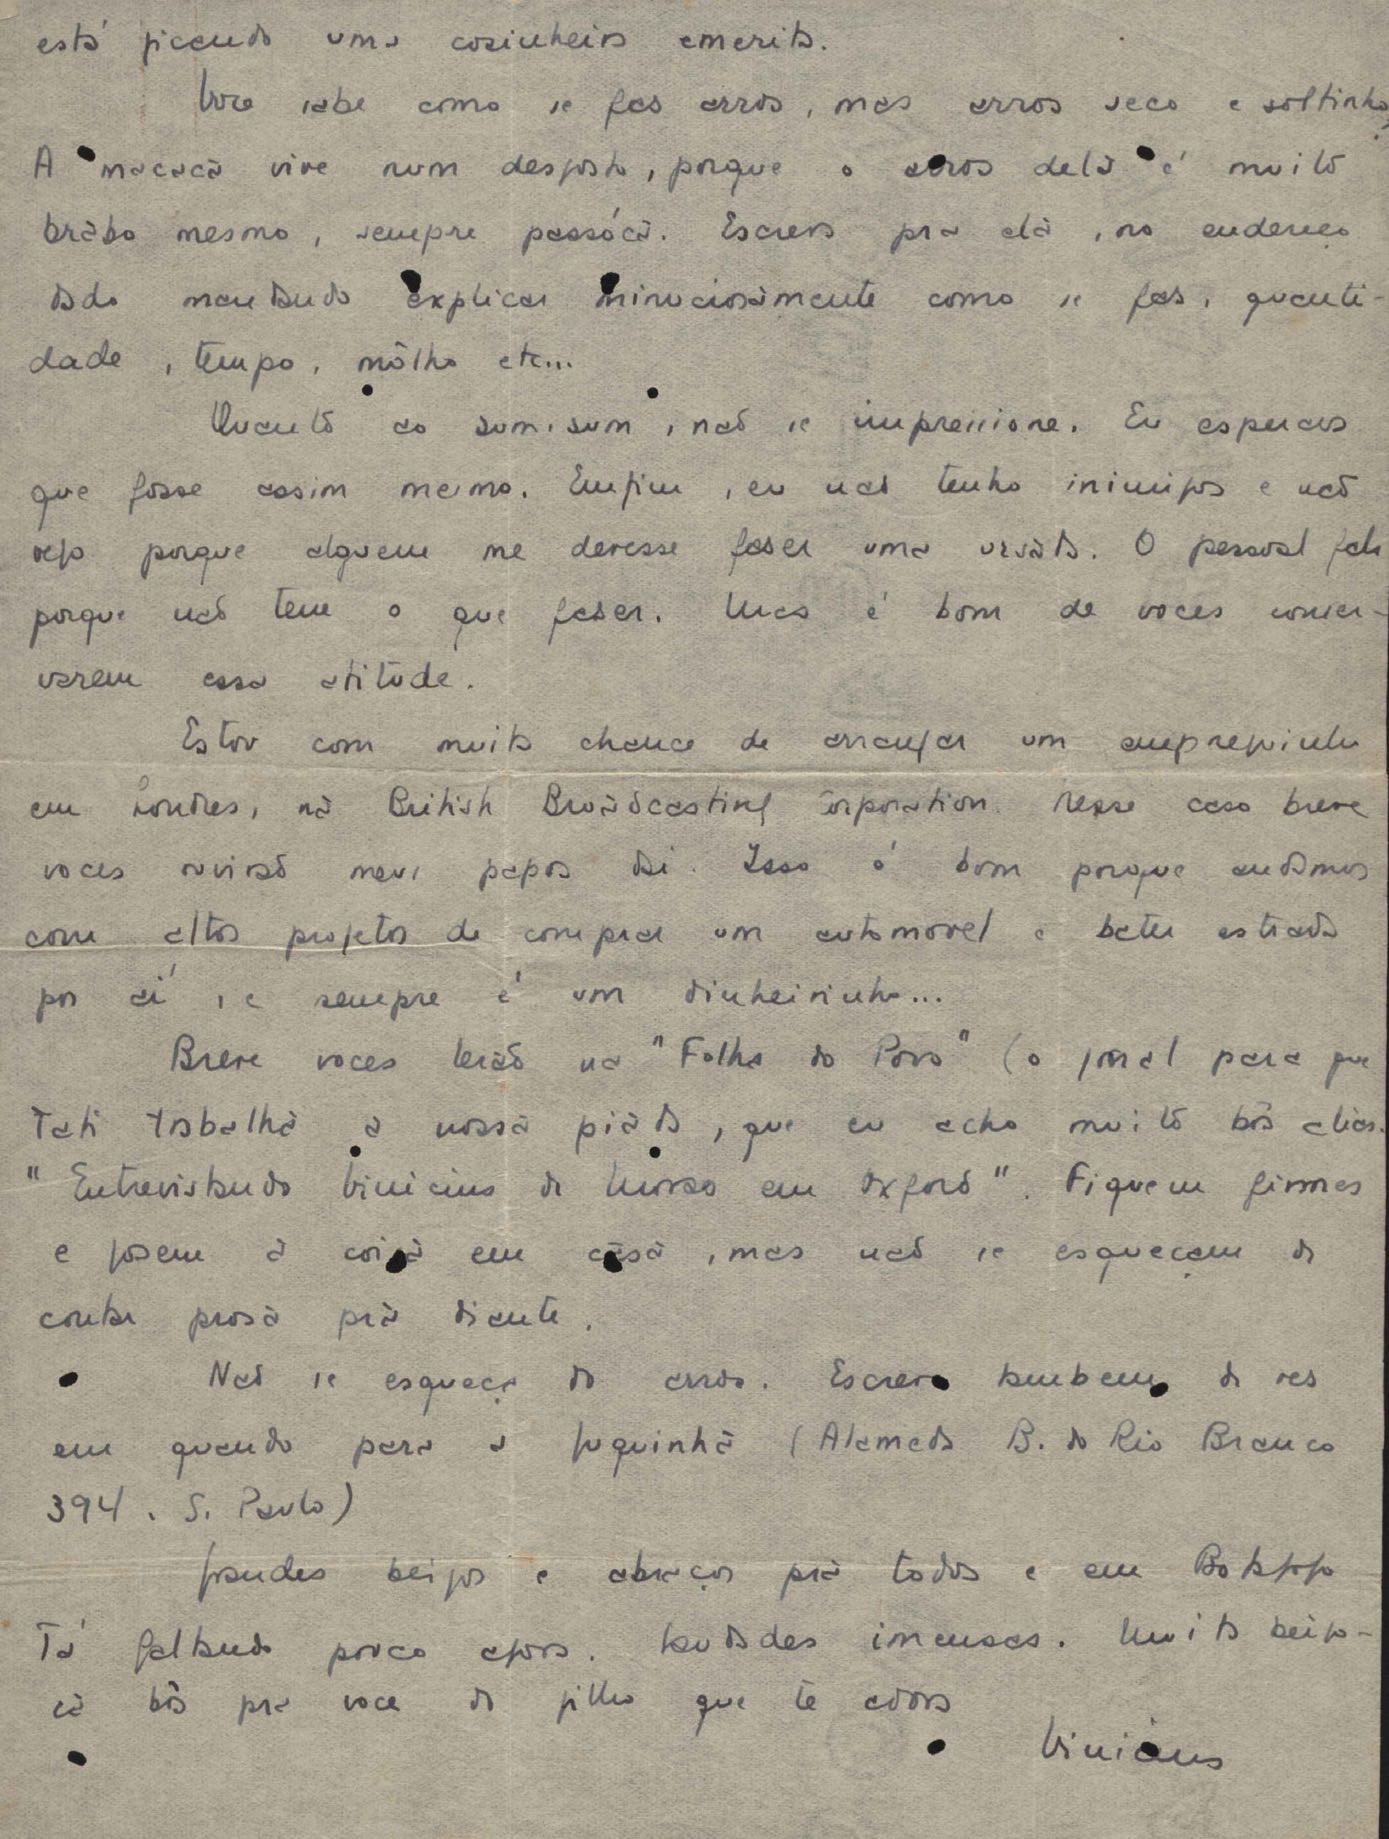 está ficando uma cosinheira emerita.
Voce sabe como se fas arros, mas arros seco e soltinho?
A macaca vive num desgosto, porque o arros dela é muito
brabo mesmo, sempre passóca. Escreva pra ela, no endereço
dado mandando explicar minuciosamente como se fas, quanti-
dade, tempo, môlho etc...
Quanto ao zum-zum, não se impressione. Eu esperava
que fosse assim mesmo. Emfim, eu não tenho inimigos e não
vejo porque alguem me devesse faser uma ursada. O pessoal fala
porque não tem o que faser. Mas é bom de voces conser-
varem essa atitude.
Estou com muita chance de arranjar um empreguinho
em Londres, na British Broadcasting Corporation. Nesse caso breve
voces ouvirão meus papos daí. Isso é bom porque andamos
com altos projetos de comprar um automovel e bater estrada
por aí, e sempre é um dinheirinho...
Breve voces lerão na "Folha do Povo" (o jornal para que
Tati trabalha a nossa piada, que eu acho muito bôa alias.
"Entrevistando Vinicius de Moraes em Oxford". Fiquem firmes
e gosem a coisa em casa, mas não se esqueçam de
contar prosa pra diante.
Não se esqueça do arros. Escreva tambem de ves
em quando para a Juquinha (Alameda B. do Rio Branco
394. S. Paulo)
Grandes beijos e abraços pra todos e em Botafogo
Tá faltando pouco agora. Saudades imensas. Muita beijo-
ca bôa pra voce do filho que te adora
Vinicius